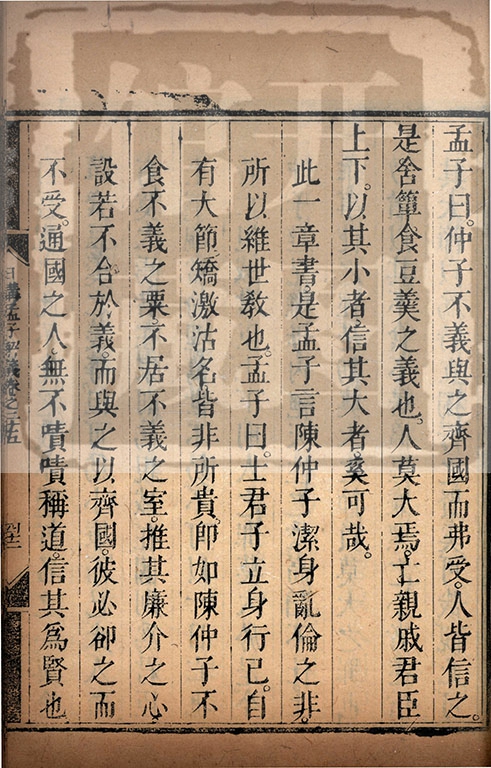 孟子曰。仲子不義與之齊國而弗受。人皆信之。
是舍簞食豆羹之義也。人莫大焉。亡親戚君臣
上下。以其小者。信其大者。奚可哉。
此一章書。是孟子言陳仲子潔身亂倫之非。
所以維世敎也。孟子曰。士君子立身行己。自
有大節。矯激沽名。皆非所貴。卽如陳仲子不
食不義之粟。不居不義之室。推其廉介之心
設若不合於義。而與之以齊國。彼必卻之而
不受。通國之人。無不嘖嘖稱道。信其爲賢也
日講孟子解義卷之二十五